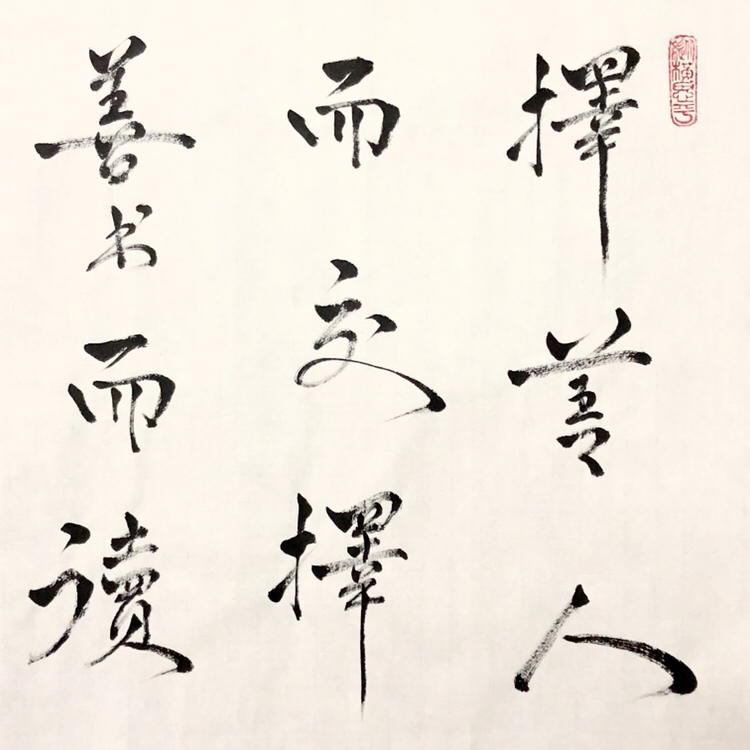 擇善人
而交擇
善书而讀